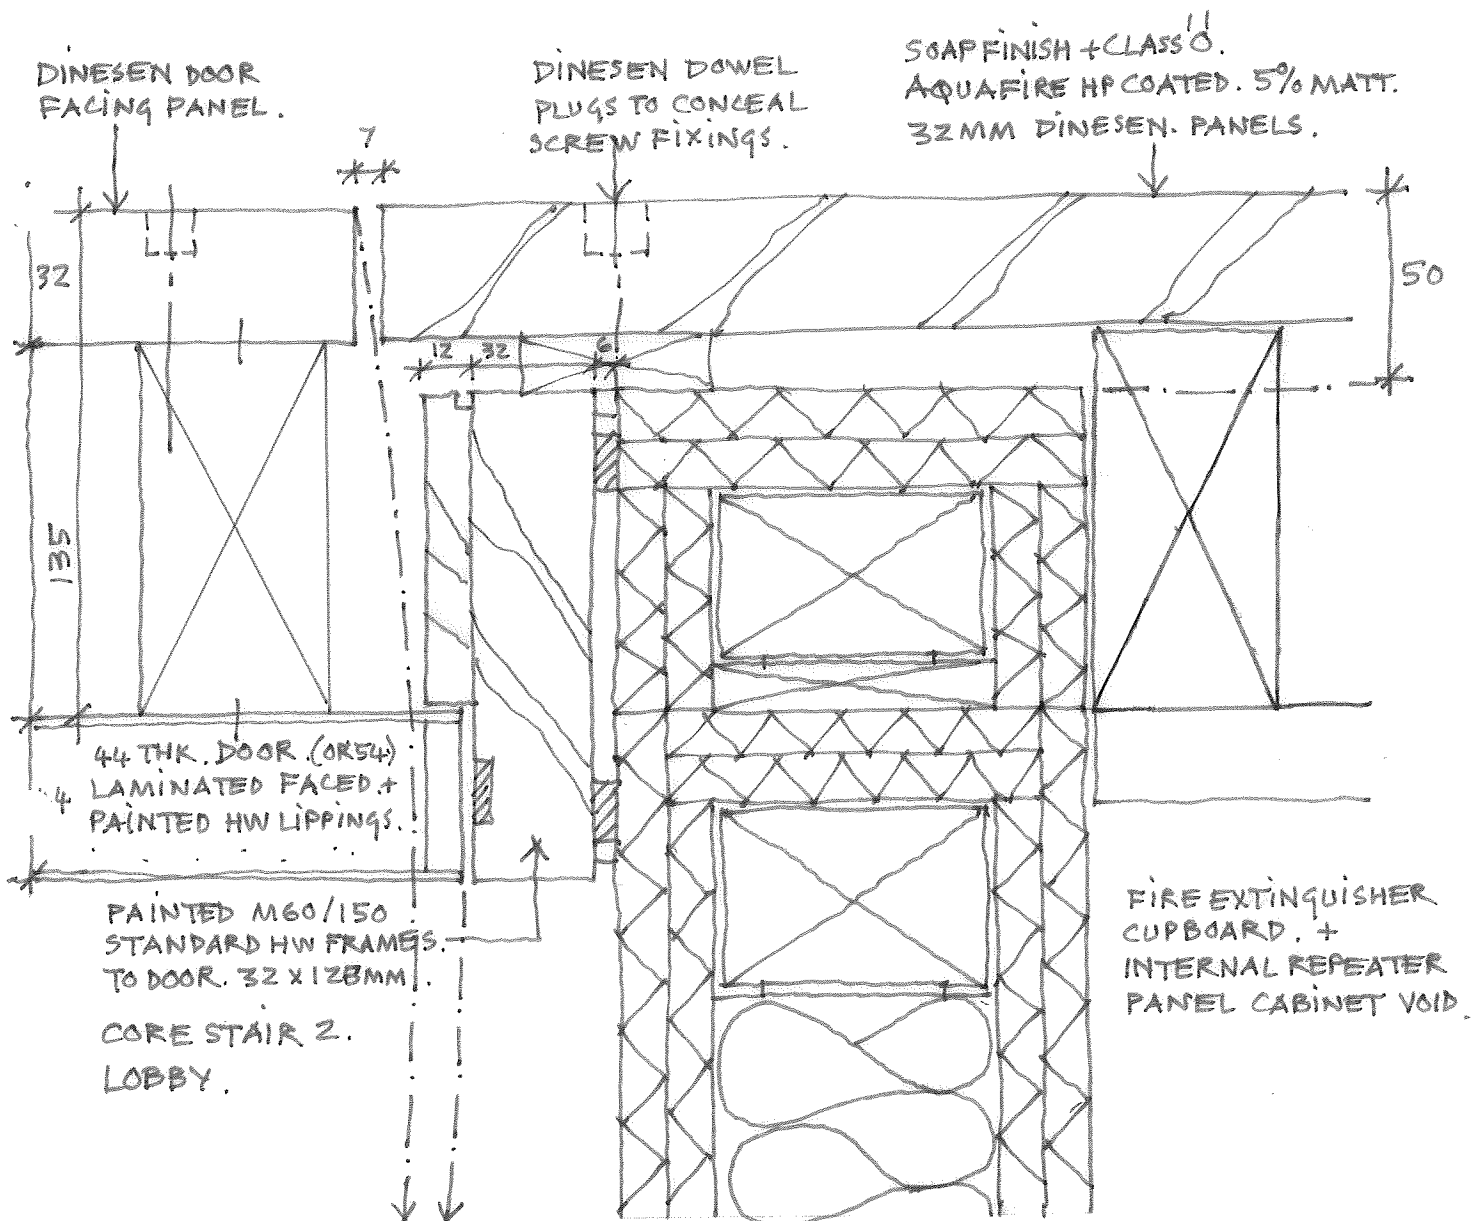 DINESEN DOOR
FACING PANEL.
DINESEN DOWEL
PLUGS TO CONCEAL
SCREW FIXINGS.
SOAP FINISH + CLASS "O".
AQUAFIRE HP COATED. 5% MATT.
32MM DINESEN. PANELS.
7
32
50
12
32
6
135
44 THK. DOOR. (DR54)
LAMINATED FACED +
PAINTED HW LIPPINGS.
4
PAINTED M60/150
STANDARD HW FRAMES.
TO DOOR. 32 X 128MM.
CORE STAIR 2.
LOBBY.
FIRE EXTINGUISHER
CUPBOARD. +
INTERNAL REPEATER
PANEL CABINET VOID.